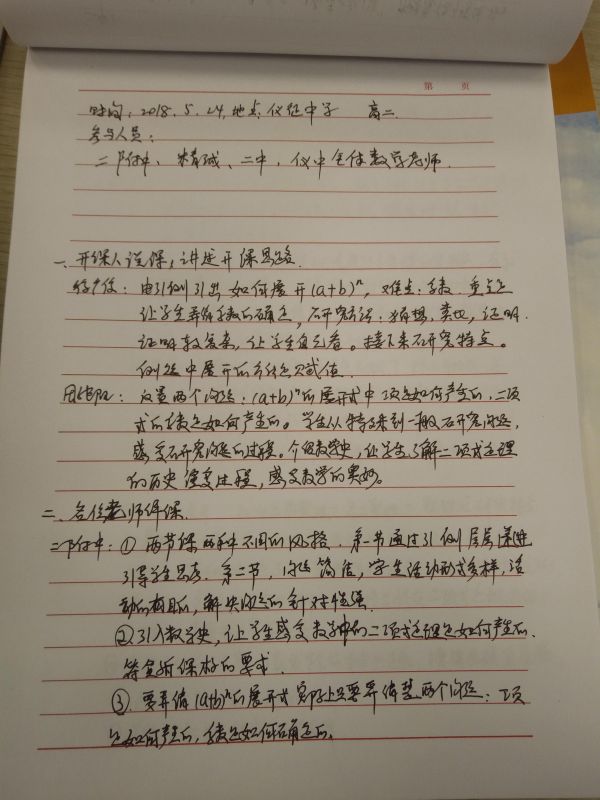 第 页
时间：2018.5.24，地点：仪征中学 高二
参与人员：
二附中、精诚、二中、仪中全体数学老师.
一、开课人说课，讲述开课思路.
由引例引出如何展开(a+b)ⁿ，难点：系数. 重点是
让学生弄清系数的确定，研究方法：猜想，类比，证明.
证明较复杂，让学生自己看。接下来研究特点。
例题中展开的方法是赋值.
设置两个问题：(a+b)ⁿ的展开式中项是如何产生的，二项
式的系数是如何产生的。学生从特殊到一般研究问题，
感受研究问题的过程。介绍数学史，让学生了解二项式定理
的历史演变过程，感受数学的奥妙。
二、各位老师评课.
二附中：①两节课两种不同的风格. 第一节通过引例层层递进
引导学生思考. 第二节，问题简洁，学生活动形式多样，活
动的有目的，解决问题的针对性强.
②引入数学史，让学生感受数学中的二项式定理是如何产生的.
符合新课标的要求.
③要弄清(a+b)ⁿ的展开式实际上只要弄清楚两个问题：项
是如何产生的，系数是如何确定的.